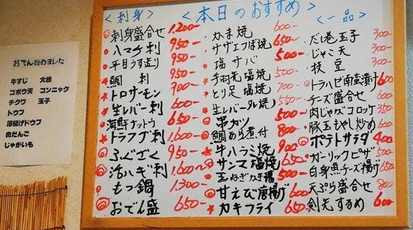 おでん始めました
牛すじ 大根
ゴボウ天 コンニャク
チクワ 玉子
トウフ
厚揚げトウフ
肉だんご
じゃがいも
<刺身>
刺身盛合せ 1,200-
ハマチ刺 950-
平目うす造り 950-
鯛 刺
トロサーモン 700-
生レバー刺
海鮮ナットウ 650-
トラフグ刺
ふぐざく 950-
活ハギ刺 1,600-
もつ鍋 1,300-
おでん盛 650-
<本日のおすすめ>
カマ焼
サザエつぼ焼
塩サバ
手羽先塩焼
とり足塩焼
生レバー塩焼
串カツ
鯛あら煮付 800-
牛ハラミ焼 900
サンマ塩焼
玉ねぎかき揚
甘えび唐揚
カキフライ 650-
<一品>
だし巻玉子
じゃこ天 300-
枝豆
トラハゼ南蛮漬け
チーズ盛合せ
肉じゃがコロッケ
豚玉もやし炒め
ポテトサラダ 400
ガーリックピザ 500-
白身魚チーズ揚げ
天ぷら盛合せ
剣先するめ 600-